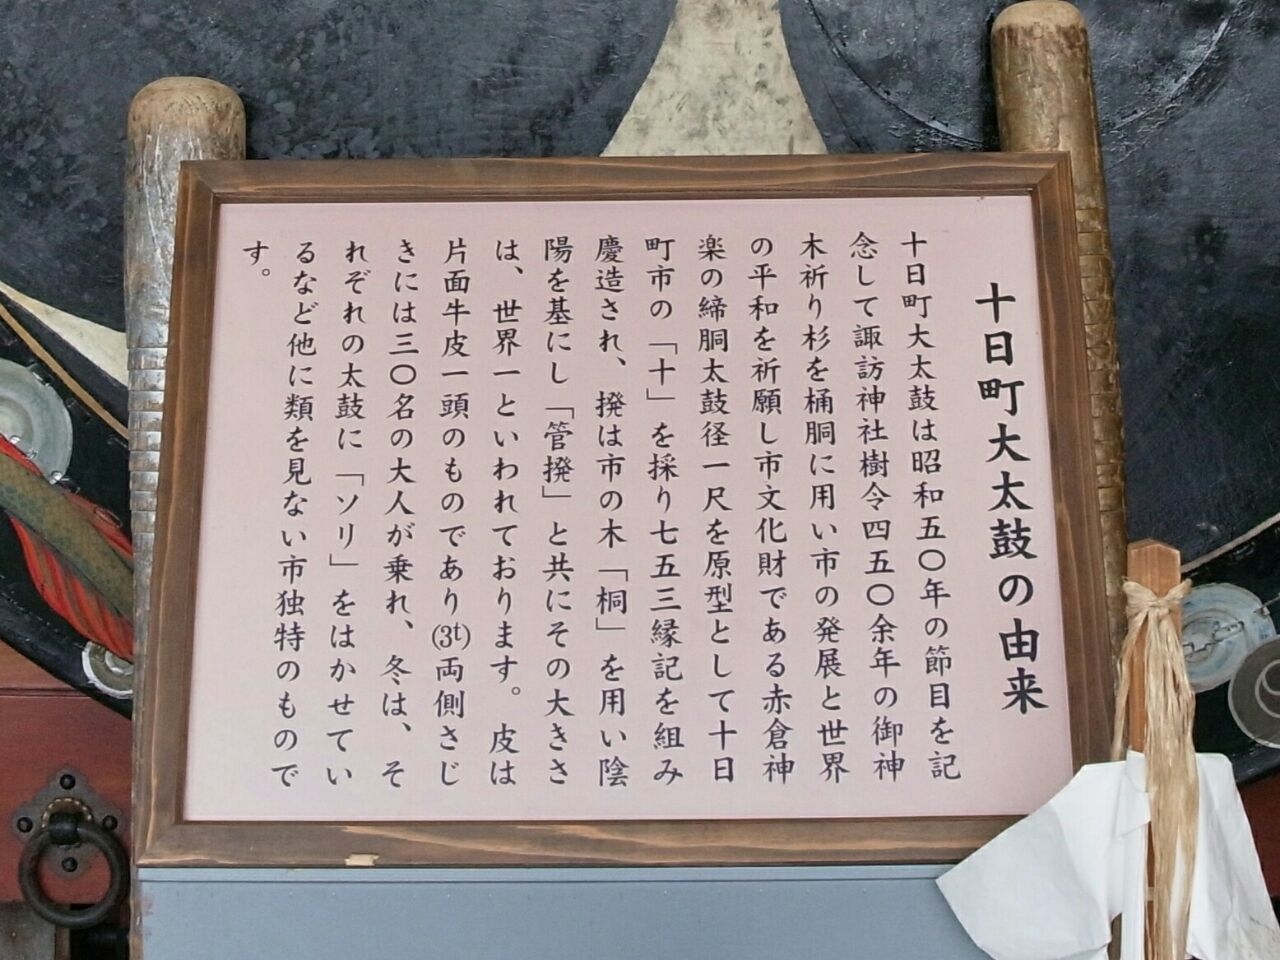 十日町大太鼓の由来
十日町大太鼓は昭和五〇年の節目を記
念して諏訪神社樹令四五〇余年の御神
木祈り杉を桶胴に用い市の発展と世界
の平和を祈願し市文化財である赤倉神
楽の締胴太鼓径一尺を原型として十日
町市の「十」を採り七五三縁記を組み
慶造され、撥は市の木「桐」を用い陰
陽を基にし「管撥」と共にその大きさ
は、世界一といわれております。皮は
片面牛皮一頭のものであり(3t)両側さじ
きには三〇名の大人が乗れ、冬は、そ
れぞれの太鼓に「ソリ」をはかせてい
るなど他に類を見ない市独特のもので
す。